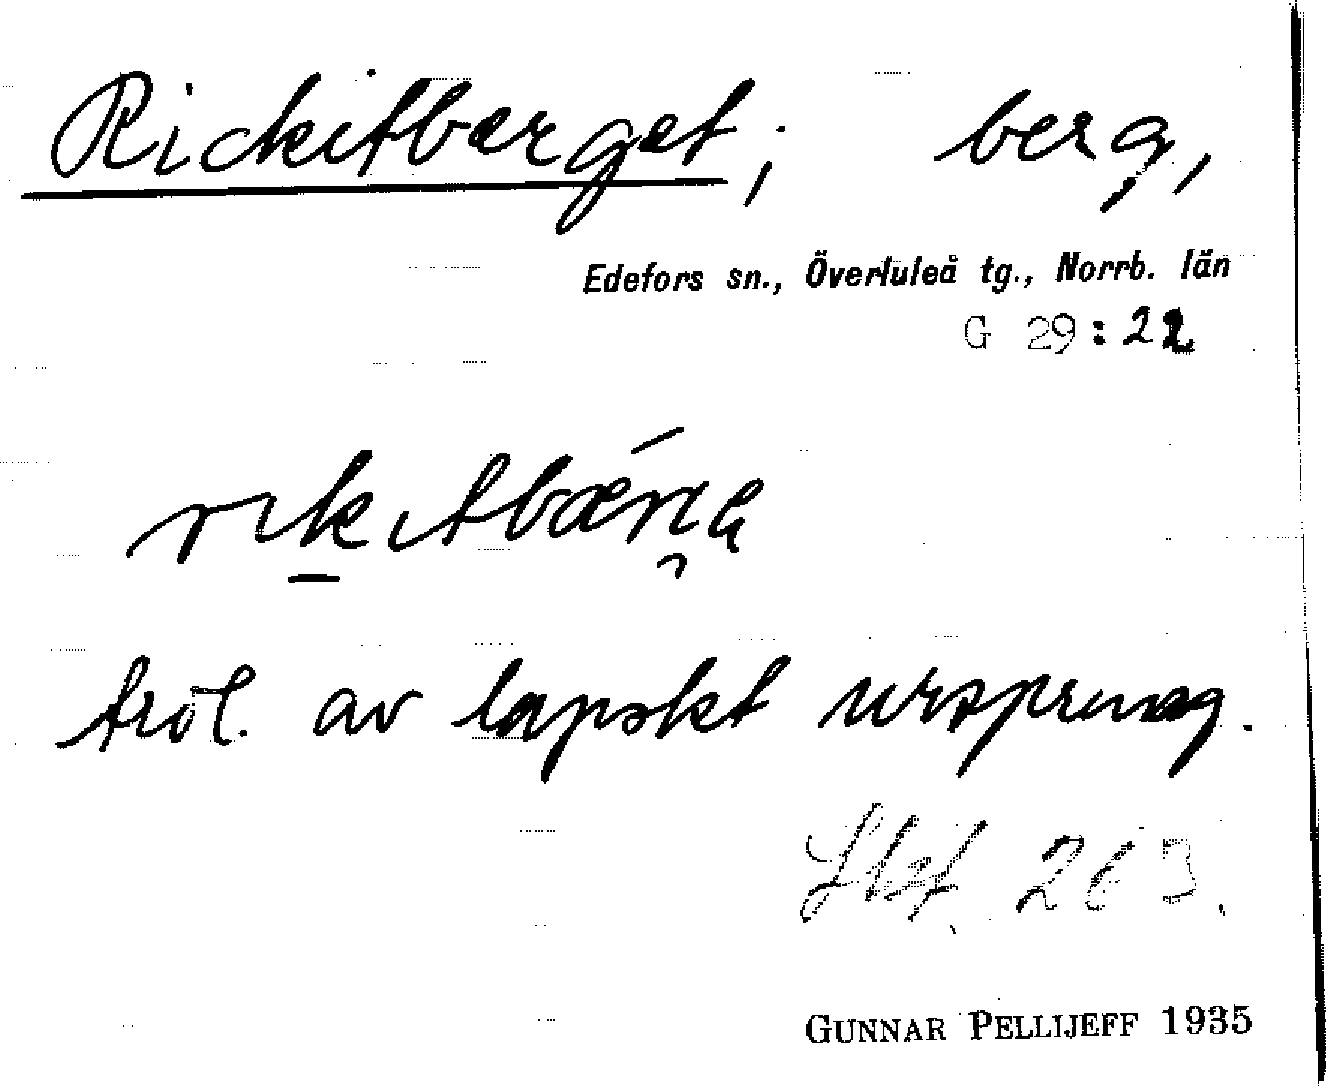 Rickitberget; berg,
Edefors sn., Överluleå tg., Norrb. län
G 29:22
trol. av lapskt ursprung.
263.
GUNNAR PELLIJEFF 1935